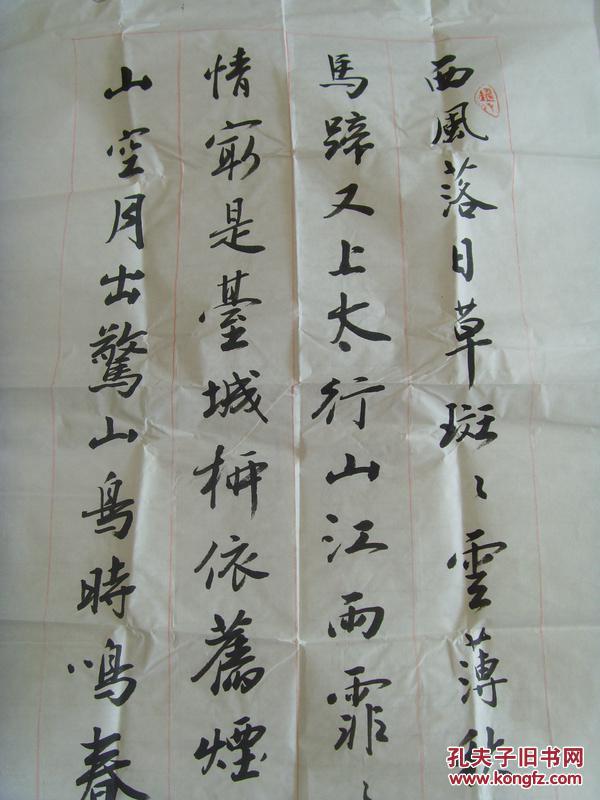 西風落日草斑〻雲薄秋
馬蹄又上太行山江雨霏〻
情寂是臺城柳依舊煙
山空月出驚山鳥時鳴春
孔夫子旧书网
www.kongfz.com